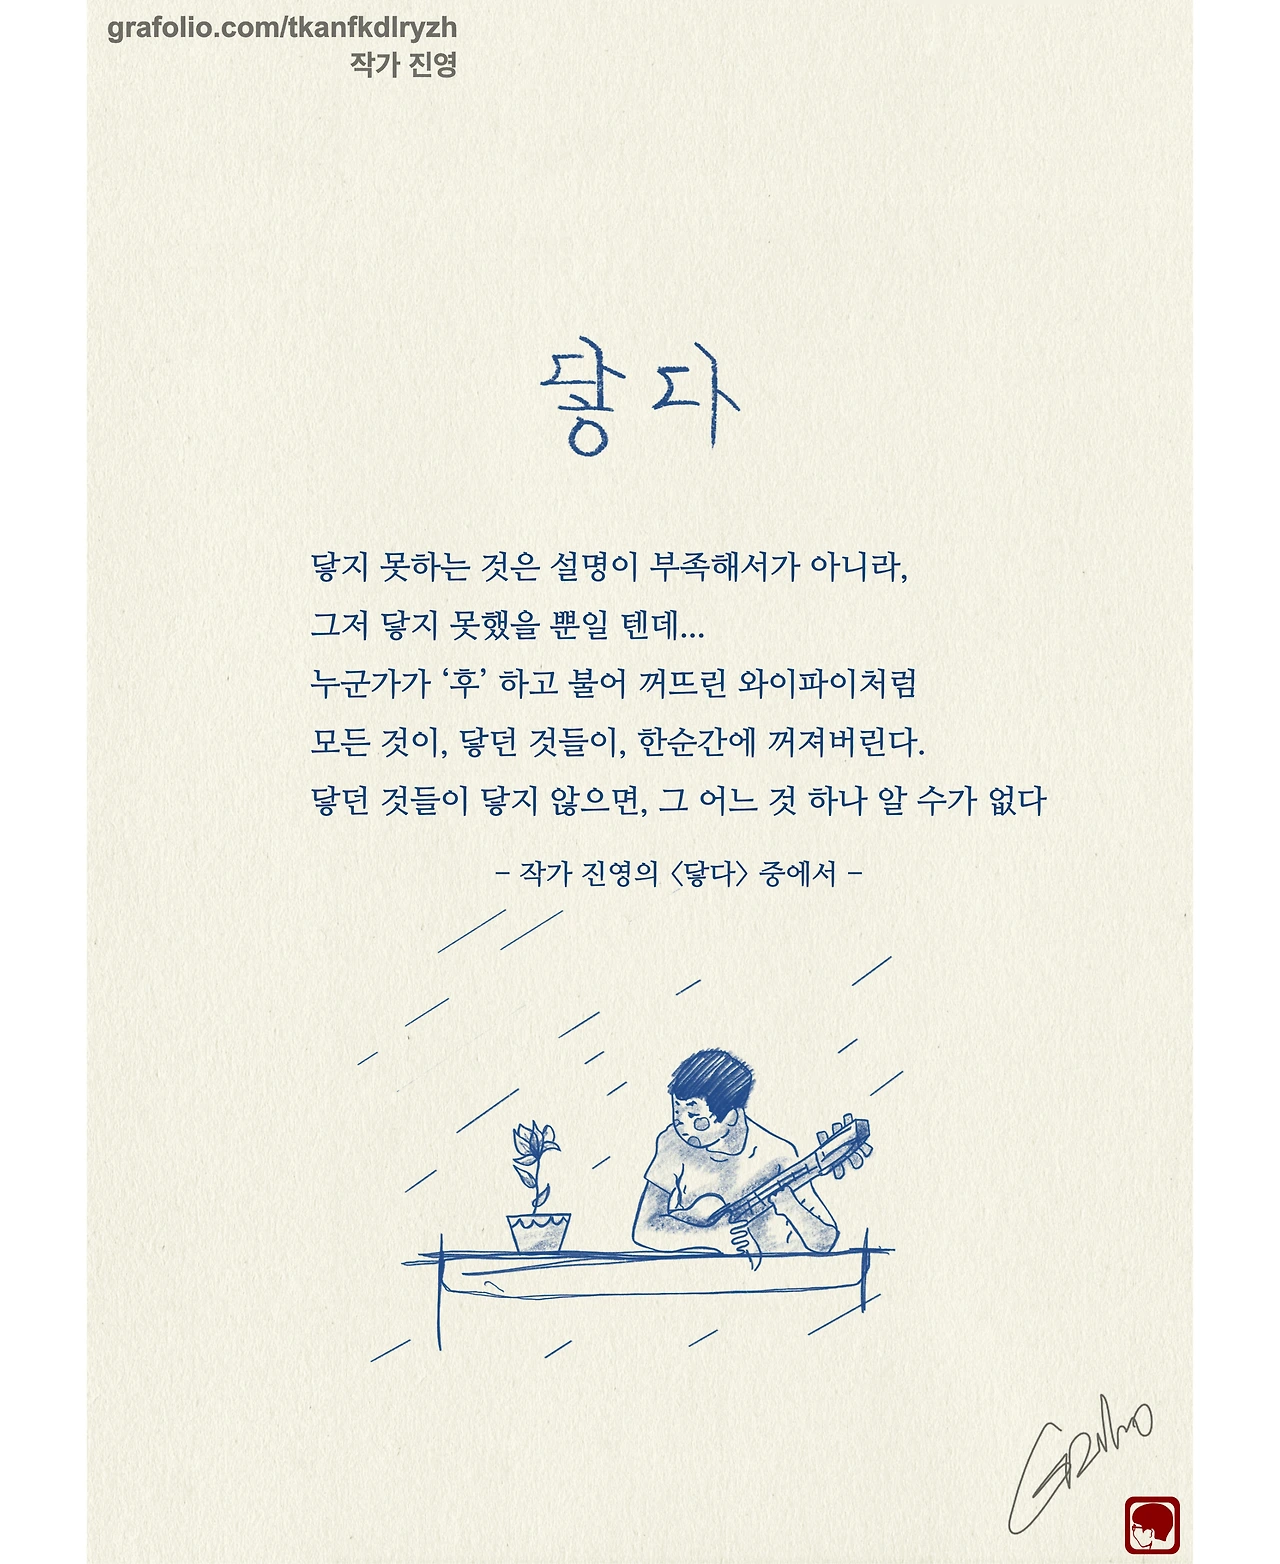 grafolio.com/tkanfkdlryzh
작가 진영
닿다
닿지 못하는 것은 설명이 부족해서가 아니라,
그저 닿지 못했을 뿐일 텐데...
누군가가 ‘후’ 하고 불어 꺼뜨린 와이파이처럼
모든 것이, 닿던 것들이, 한순간에 꺼져버린다.
닿던 것들이 닿지 않으면, 그 어느 것 하나 알 수가 없다
– 작가 진영의 〈닿다〉 중에서 –